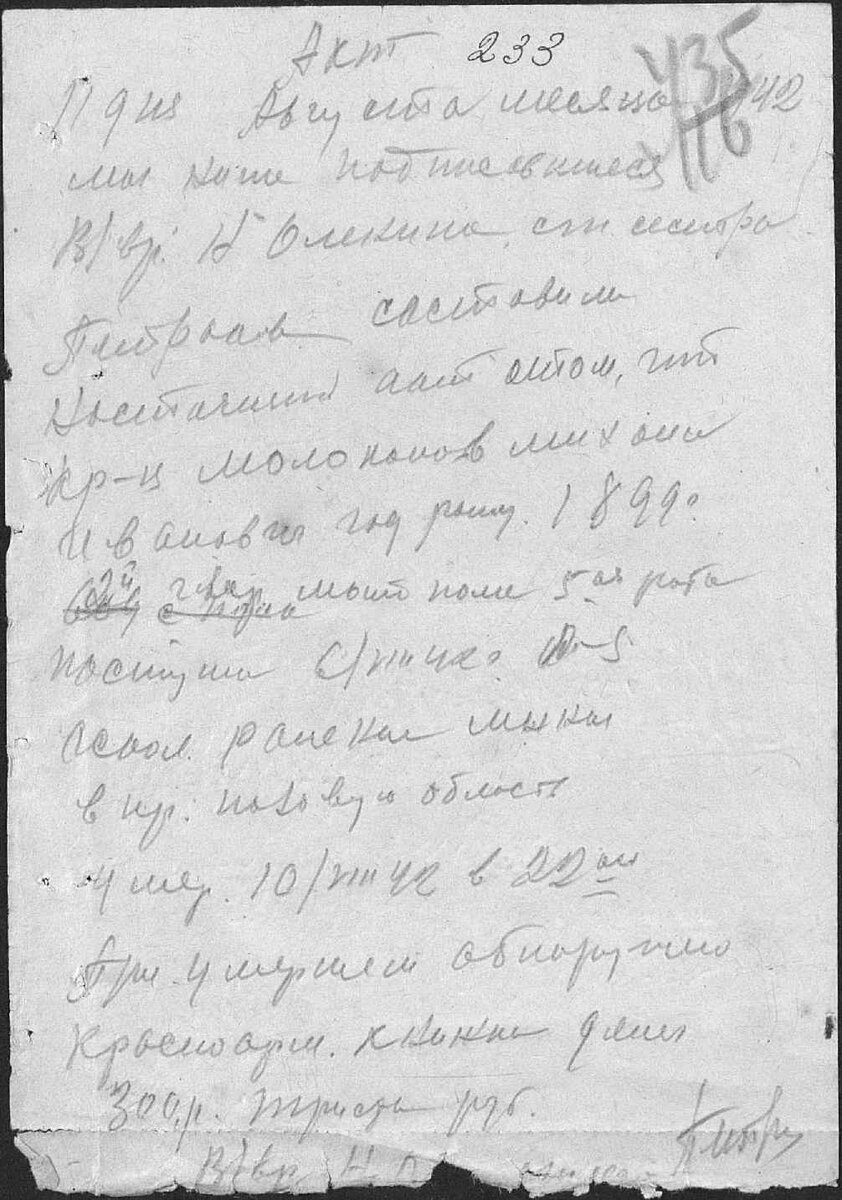 Акт 233
435
116
11 дня Августа месяца 42
мы ниже подписавшиеся
В/вр. Н Олекина, ст сестра
составили
настоящий акт о том, что
кр-ц Молоканов Михаил
Иванович год рожд. 1899.
2й гвар мот полк 5ая рота
поступил
оскол. ранение
в пр. паховую область
Умер. 10/VIII 42 в 22
При умершем обнаружено
Красноарм. книжка деньг
300р. триста руб.
В/вр. Н.